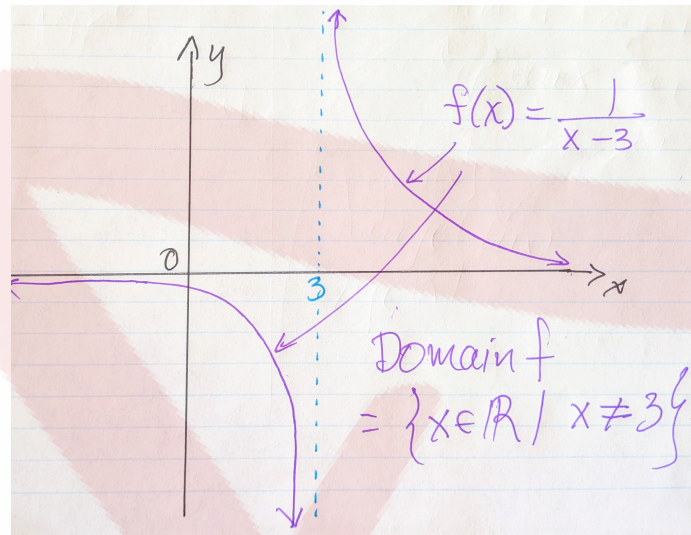 y
f(x) = 1/(x-3)
0
3
x
Domain f
= {x∈ℝ | x≠3}